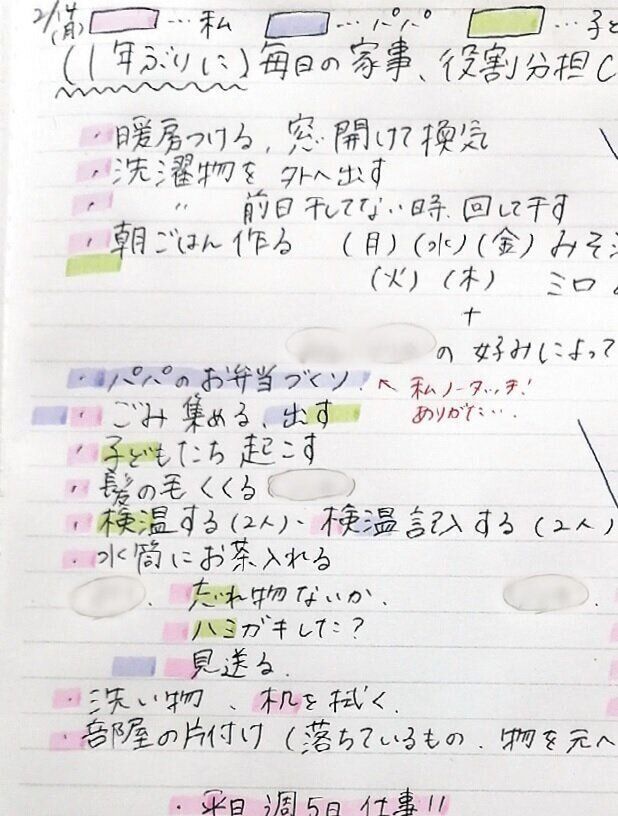 2/14(月) …私 …パパ …子ど
(1年ぶりに)毎日の家事、役割分担
・暖房つける、窓開けて換気
・洗濯物を外へ出す
・ 〃 前日干してない時、回して干す
・朝ごはん作る (月)(水)(金)みそ
(火)(木) ミロ
+
の好みによって
・パパのお弁当づくり! ← 私ノータッチ!
ありがた…。
・ごみ集める、出す
・子どもたち起こす
・髪の毛くくる
・検温する(2人)・検温記入する(2人)
・水筒にお茶入れる
・忘れ物ないか、
ハミガキした?
見送る。
・洗い物、机を拭く。
・部屋の片付け(落ちているもの、物を元へ
・平日週5日仕事!!